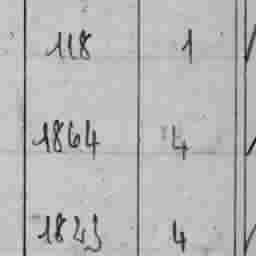 118 1
1864 4
1823 4